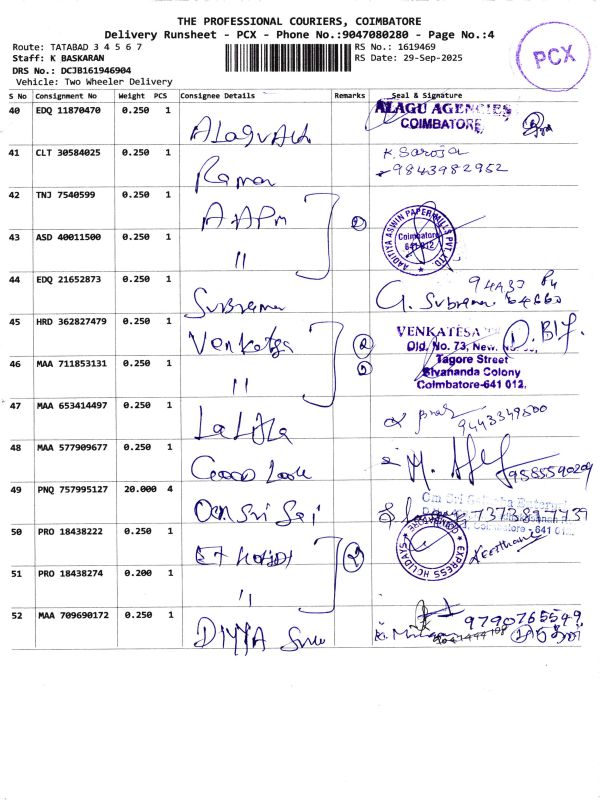 THE PROFESSIONAL COURIERS, COIMBATORE
Delivery Runsheet - PCX - Phone No.:9047080280 - Page No.:4
Route: TATABAD 3 4 5 6 7
Staff: K BASKARAN
DRS No.: DCJB161946904
Vehicle: Two Wheeler Delivery
RS No.: 1619469
RS Date: 29-Sep-2025
PCX
S No Consignment No Weight PCS Consignee Details Remarks Seal & Signature
40 EDQ 11870470 0.250 1 ALAGU AGENCIES
COIMBATORE
41 CLT 30584025 0.250 1 Raman K. Saroja
9843982952
42 TNJ 7540599 0.250 1 2
43 ASD 40011500 0.250 1 " AADITYA ASWIN PAPER MILLS PVT. LTD. Coimbatore 641 012
44 EDQ 21652873 0.250 1 G. Subrama
45 HRD 362827479 0.250 1 2 VENKATESA
Old. No. 73, New.
46 MAA 711853131 0.250 1 " Tagore Street
Sivananda Colony
Coimbatore-641 012.
47 MAA 653414497 0.250 1 9443349500
48 MAA 577909677 0.250 1 Good Look 9585590209
49 PNQ 757995127 20.000 4 Om Sri Sai Om Sri
7373897737
Coimbatore - 641
50 PRO 18438222 0.250 1 2 EXPRESS HOLIDAYS COIMBATORE
Keerthana
51 PRO 18438274 0.200 1 "
52 MAA 709690172 0.250 1 DIYYA 9790765549